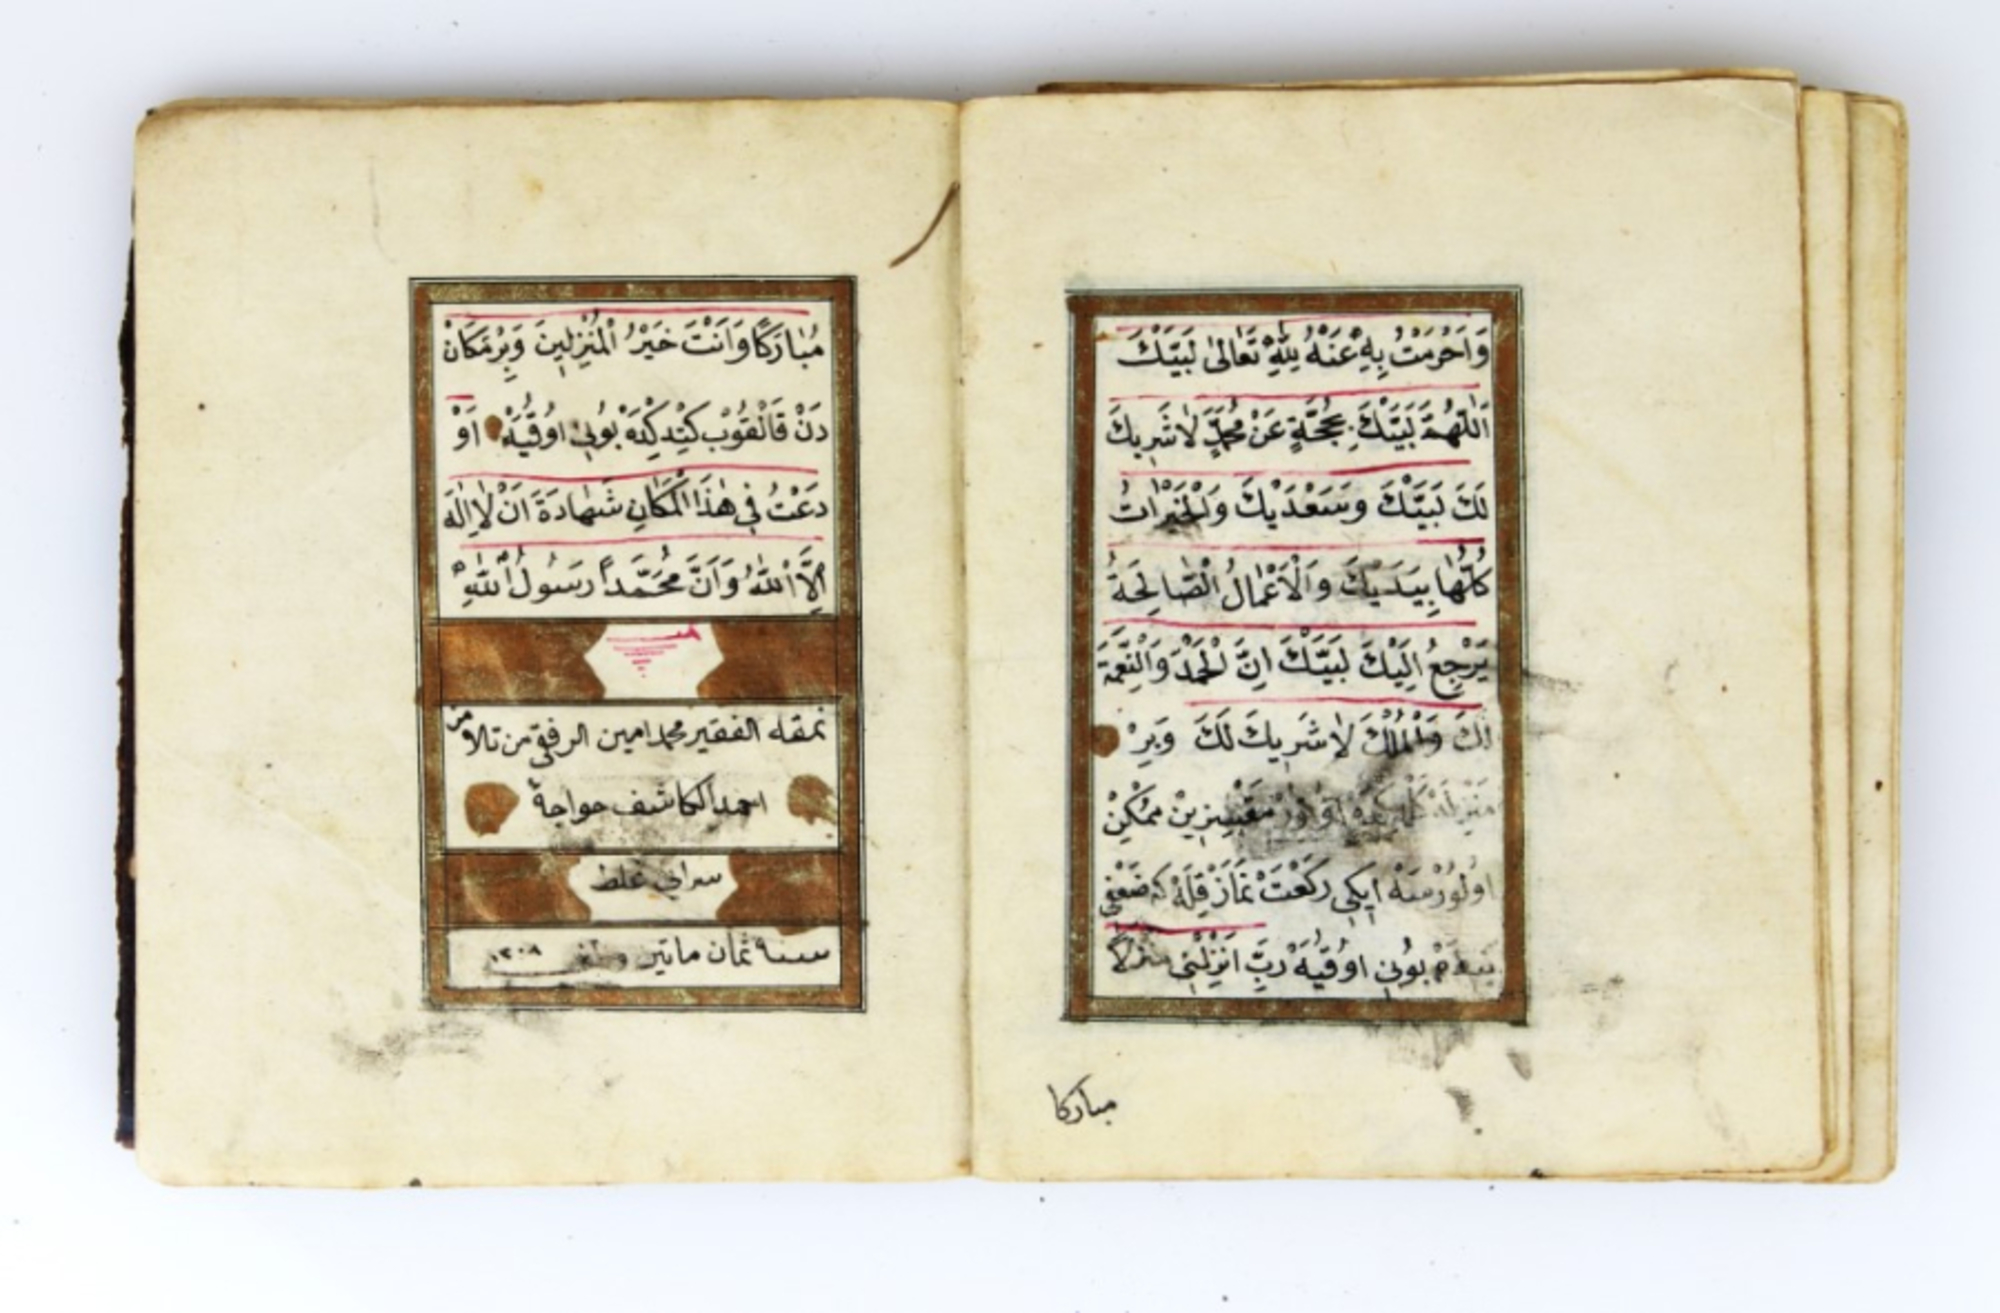 وَاَحْرَمْتُ بِهِ عَنْهُ لِلّٰهِ تَعَالٰى لَبَيَّكْ
اَللّٰهُمَّ لَبَيَّكْ بِحُجَّةٍ عَنْ مُحَمَّدٍ لَاشَرِيكَ
لَكَ لَبَيَّكْ وَسَعْدَيْكَ وَالْخَيْرَاتُ
كُلُّهَا بِيَدَيْكَ وَالْاَعْمَالُ الْصَّالِحَةُ
يَرْجِعُ اِلَيْكَ لَبَيَّكْ اِنَّ الْحَمْدَ وَالْنِّعْمَةَ
لَكَ وَالْمُلْكَ لَاشَرِيكَ لَكَ وَبِرْ
مَنْزِلَهْ مُمْكِنْ
اوُلُورْسَهْ اِيكِى رَكْعَتْ نَمَازْ قِلَهْ كه ضَعْفِى
بُونِى اوُقُيَهْ رَبِّ اَنْزِلْنِى مُنْزَلًا
مباركا
مُبَارَكًا وَاَنْتَ خَيْرُ الْمُنْزِلِينَ وَبِرْمَكَانْ
دَنْ قَالْقُوبْ كِتْدِكِدَهْ بُونِى اوُقُيَهْ اَوْ
دَعْتُ فِى هٰذَا الْمَكَانِ شَهَادَةَ اَنْ لَا اِلٰهَ
اِلَّا اللّٰهُ وَاَنَّ مُحَمَّداً رَسُولُ اللّٰهِ
نمقه الفقير محمد امين الرفقى من تلامز
احمد الكاشف خواجهٔ
سراى غلطه
سنه ثمان ماتين و الف ١٢٠٨